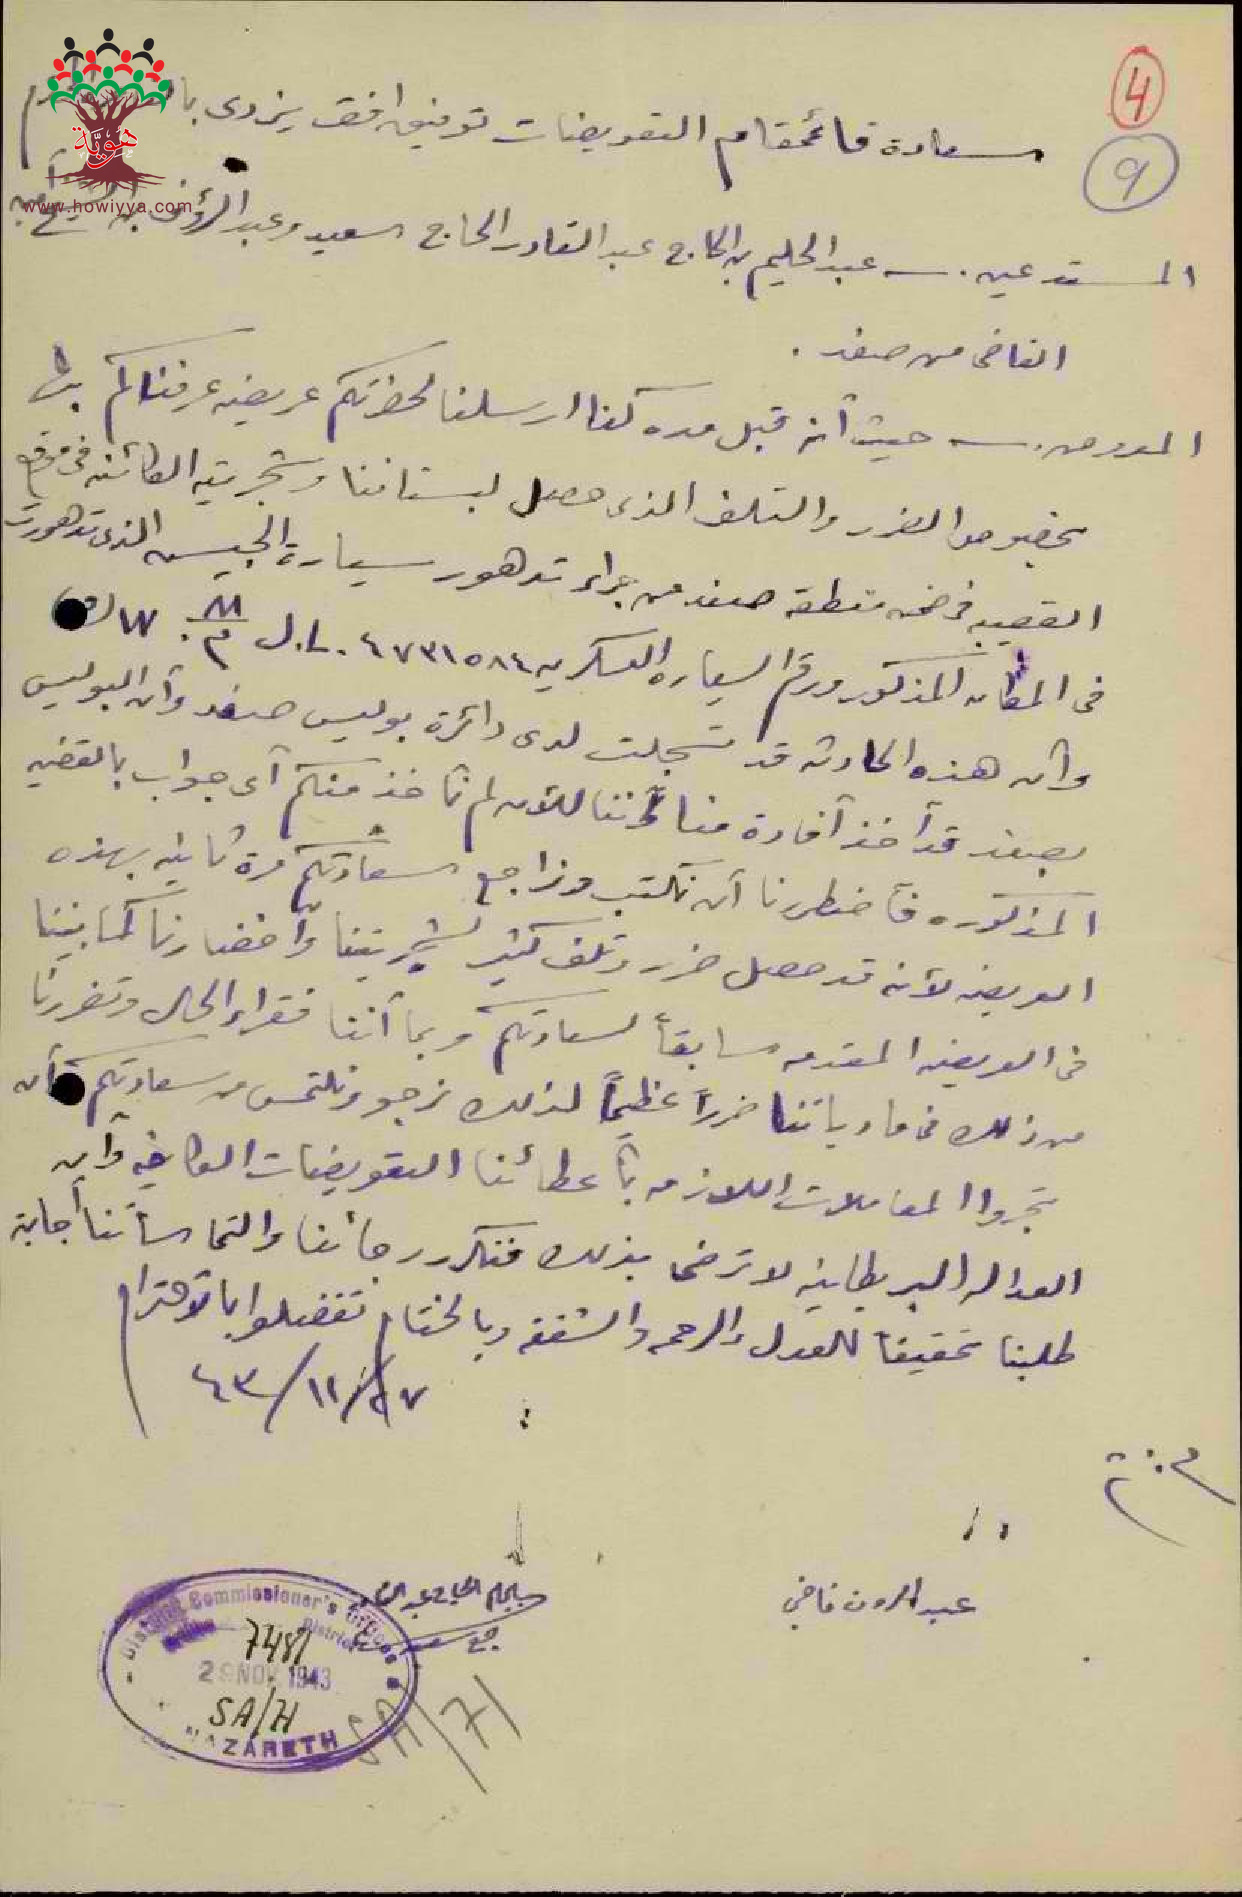 4
9
هوية
www.howiyya.com
سعادة قائمقام التعويضات توفيق افندي
المستدعين . ــ عبد الحليم بن الحاج عبد القادر الحاج سعيد وعبد الرؤف
القاضي من صفد .
المعروض . ــ حيث أنه قبل مده كنا ارسلنا لحضرتكم عريضه عرفناكم بها
بخصوص الضرر والتلف الذي حصل لبستاننا وشجريته الكائنه في موقع
القصيبه في ضمن منطقة صفد من جراء تدهور سيارة الجيس الذي تدهورت
في المكان المذكور ورقم السياره العسكريه ٤٧٣١٥٨٤ .L.
وان هذه الحادثه قد تسجلت لدى دائرة بوليس صفد وأن البوليس
بصفد قد أخذ أفادة منا للأن لم نأخذ منكم أى جواب بالقضيه
المذكوره فأضطرنا أن نكتب ونراجع سعادتكم مرة ثانيه بهذه
العريضه لأنه قد حصل ضرر وتلف كثير لشجريتنا وأخضارنا كما بيننا
في العريضه المقدمه سابقاً لسعادتكم وبما أننا فقراء الحال وتضررنا
من ذلك في مادياتنا ضرراً عظيماً لذلك نرجو ونلتمس من سعادتكم أن
تجروا المعاملات اللازمه بأعطائنا التعويضات الكافيه وأن
العداله البريطانيه لا ترضى بذلك فنكرر رجائنا والتماساتنا أجابة
طلبنا تحقيقاً للعدل والرحمه والشفقه وبالختام تفضلوا بالأحترام
٢٧/١١/٤٣
عبد الرؤف قاضي
عبد الحليم الحاج عبد القادر
حج سعيد
District Commissioner's Office
District
7481
29 NOV 1943
SA/71
NAZARETH
SA/71